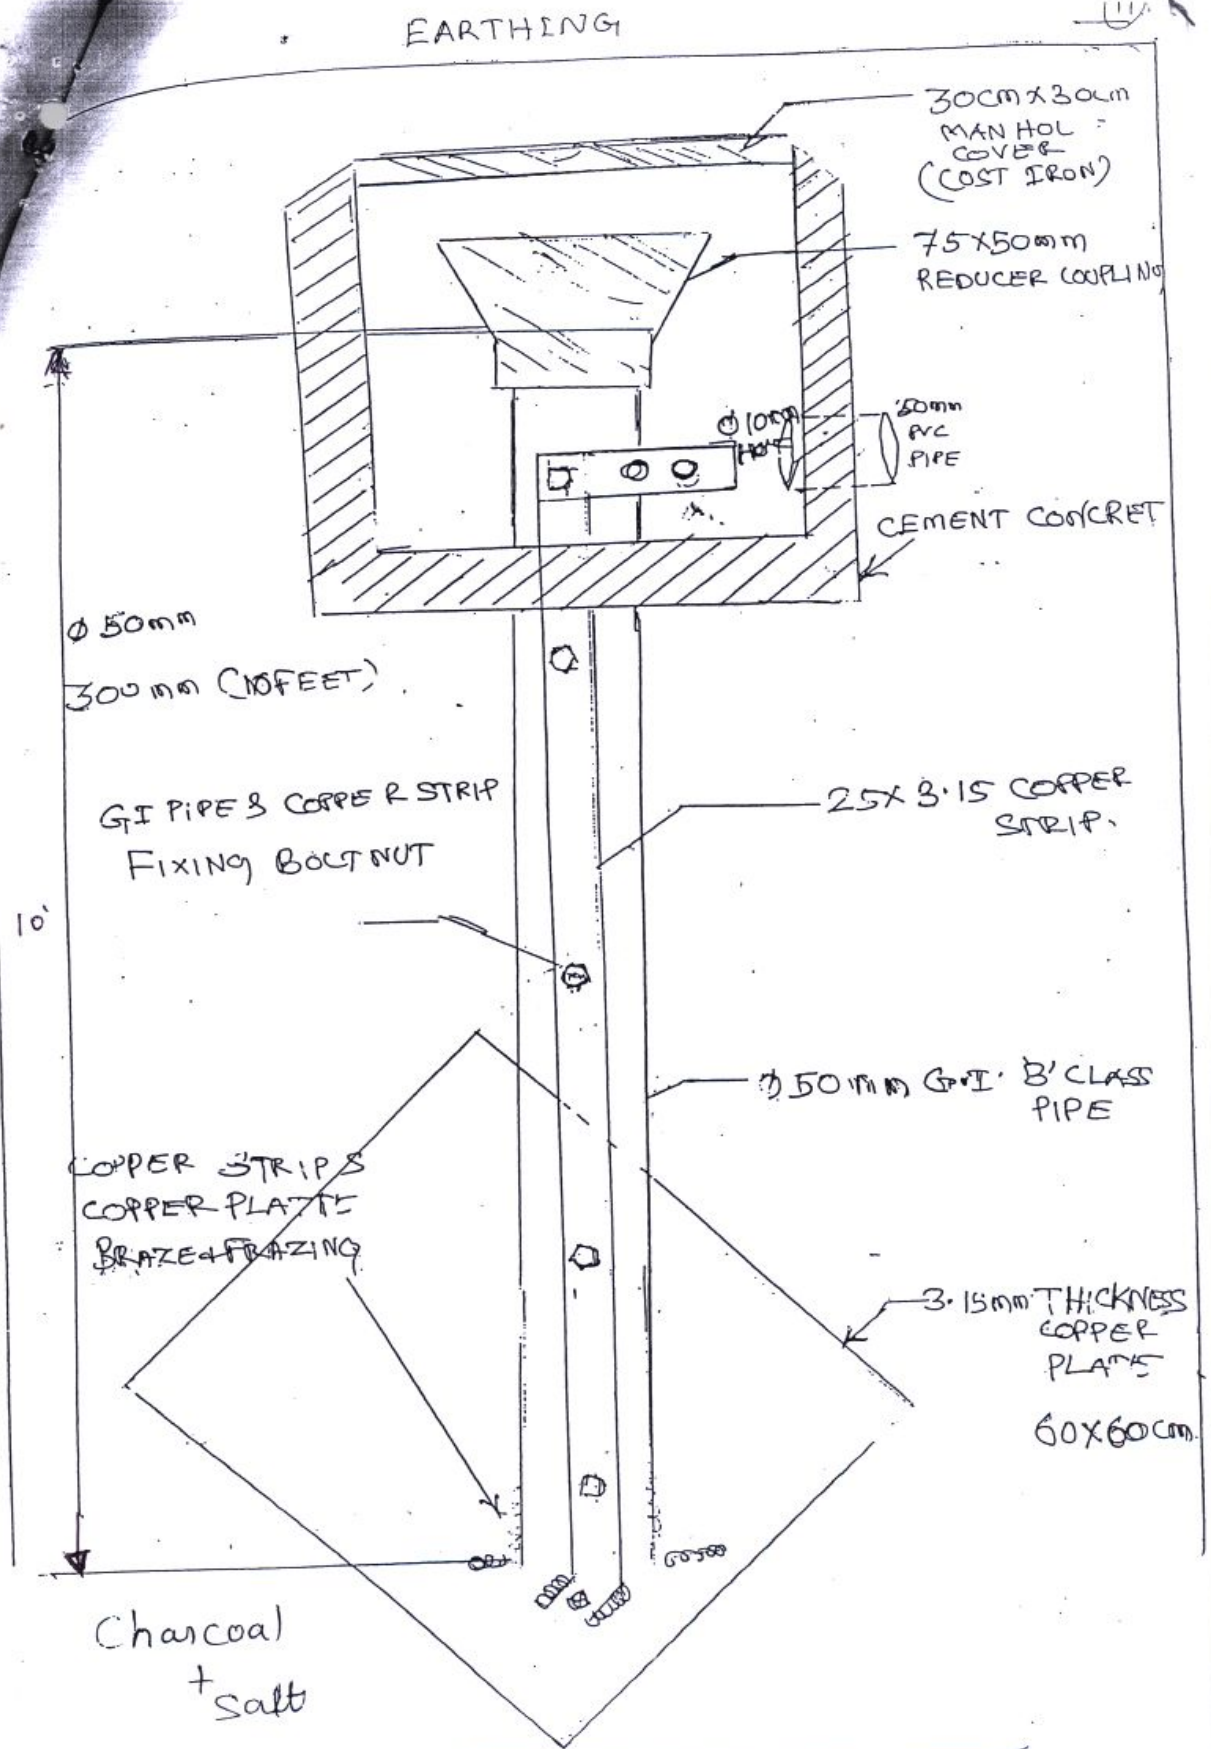 EARTHING
11
30cm x 30cm
MAN HOL
COVER
(COST IRON)
75X50mm
REDUCER COUPLING
Ø 10mm
HOL
50mm
PVC
PIPE
CEMENT CONCRET
Ø 50mm
300mm (10FEET)
GI PIPE & COPPER STRIP
FIXING BOLT NUT
25X 3.15 COPPER
STRIP.
10'
Ø50mm G.I. 'B' CLASS
PIPE
COPPER STRIP &
COPPER PLATE
3.15mm THICKNESS
COPPER
PLATE
60X60cm
Charcoal
+
Salt